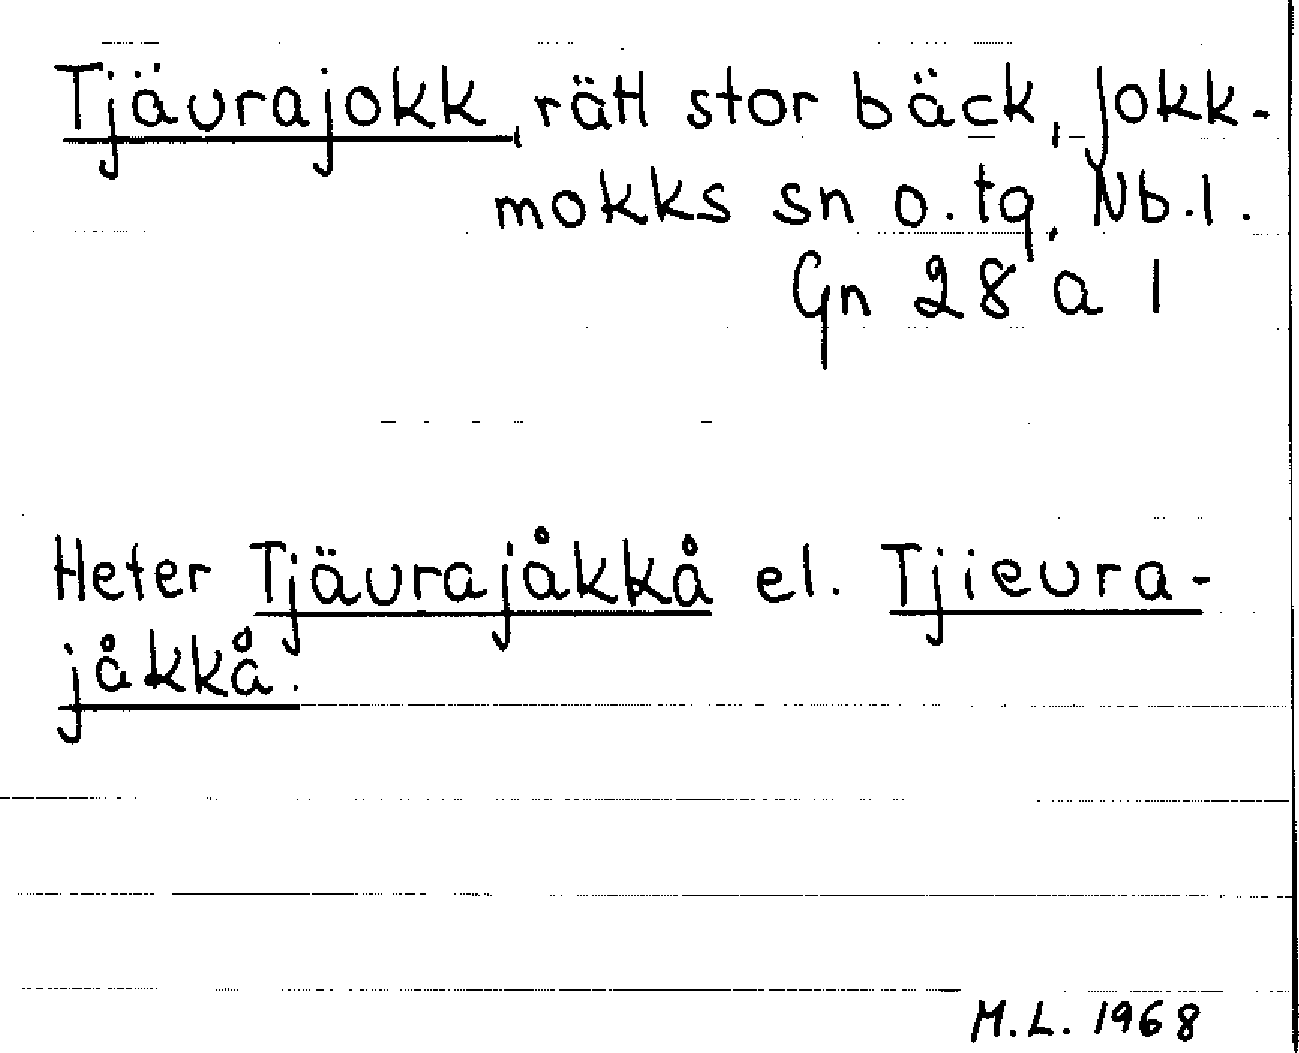 Tjäurajokk, rätt stor bäck, Jokk-
mokks sn o. tg, Nb. l.
Gn 28 a 1
Heter Tjäurajåkkå el. Tjieura-
jåkkå.
M.L. 1968